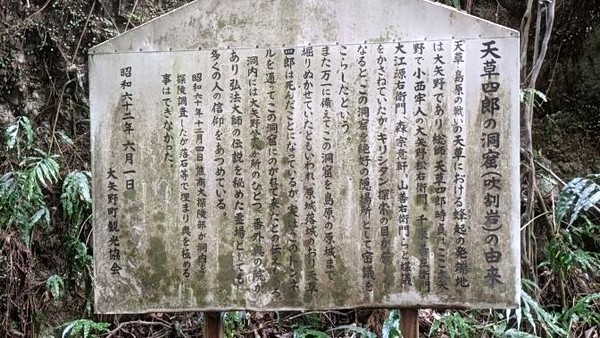 天草四郎の洞窟(吹割岩)の由来
天草・島原の戦いの天草における蜂起の発端地
は大矢野であり総師、天草四郎時貞は、ここ大矢
野で小西牢人の大矢野松右衛門、千束善右衛門
大江源右衛門、森宗意軒、山善右衛門らと協議
をかさねていたが、キリシタン探索の目が
なるとこの洞窟を絶好の隠場所として密議を
こらしたという。
また万一に備えてこの洞窟を島原の原城まで
掘りぬかせていたともいわれ原城落城のおり天草
四郎は死んだことになっているが、実はこのトンネ
ルを通ってこの洞窟にのがれて来たとの
洞内には大矢野八十八ヶ所のひとつ、番外
あり弘法大師の伝説を秘めた霊場としても
多くの人の信仰をあつめている。
昭和六十年十二月四日熊商大探険部が洞内を
探険調査したが落石等で埋まり奥を極める
事はできなかった。
昭和六十二年六月一日
大矢野町観光協会